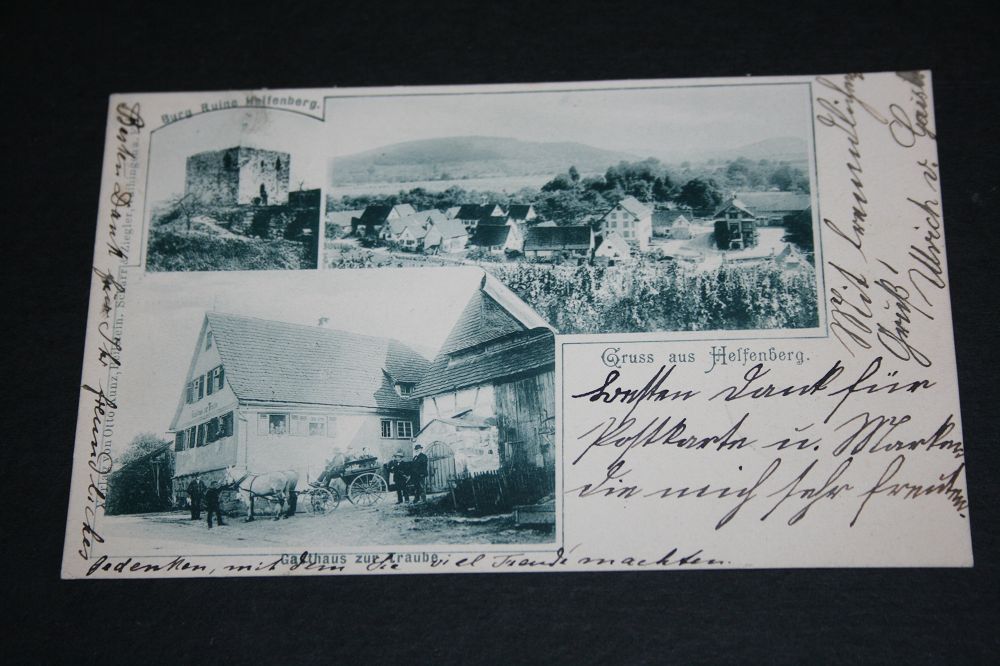 Burg Ruine Helfenberg.
Gruss aus Helfenberg.
Gasthaus zur Traube.
Besten Dank für
Postkarte u. Marken
die mich sehr freuten.
Mit freundlichem
Gruß!
Ulrich v. Gaisberg
Besten Dank für Ihr freundliches
Gedenken, mit dem Sie viel Freude machten.
von Otto Kunz,
Ziegler,